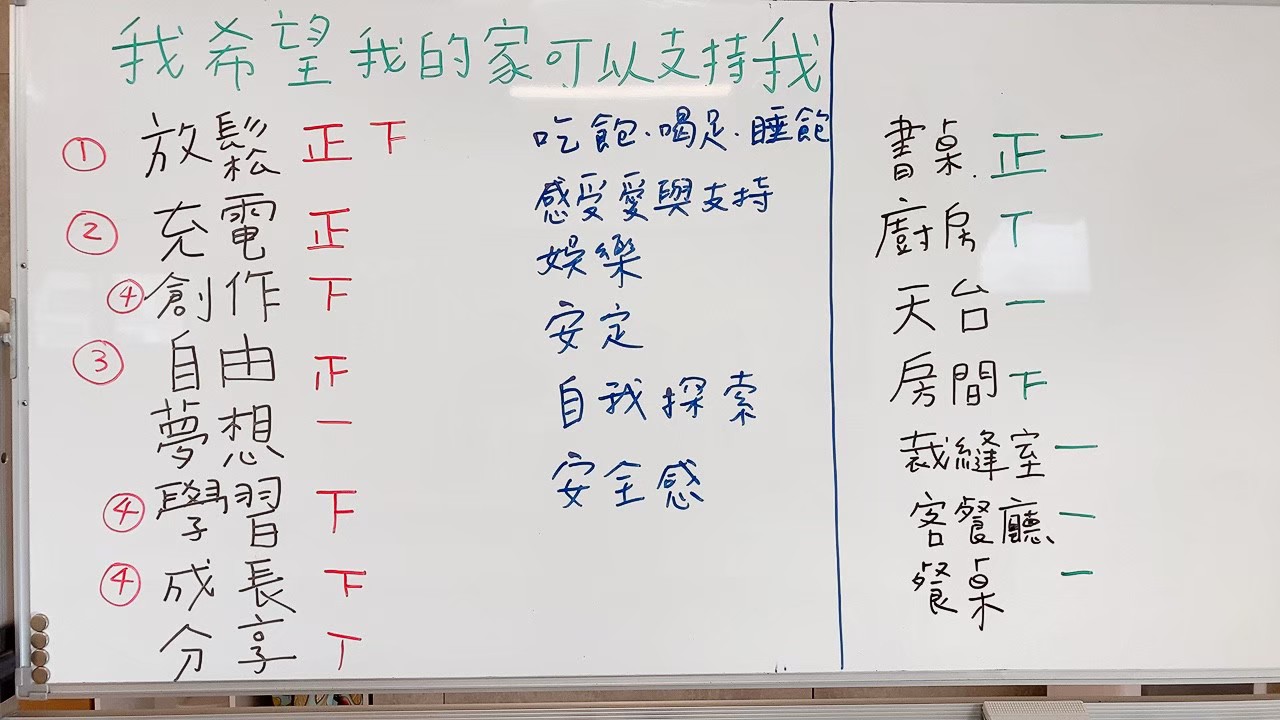 我希望我的家可以支持我
① 放鬆 正下
② 充電 正
④ 創作 下
③ 自由 正
夢想 一
④ 學習 下
④ 成長 下
分享 丅
吃飽·喝足·睡飽
感受愛與支持
娛樂
安定
自我探索
安全感
書桌 正一
廚房 丅
天台 一
房間 下
裁縫室 一
客餐廳 一
餐桌 一